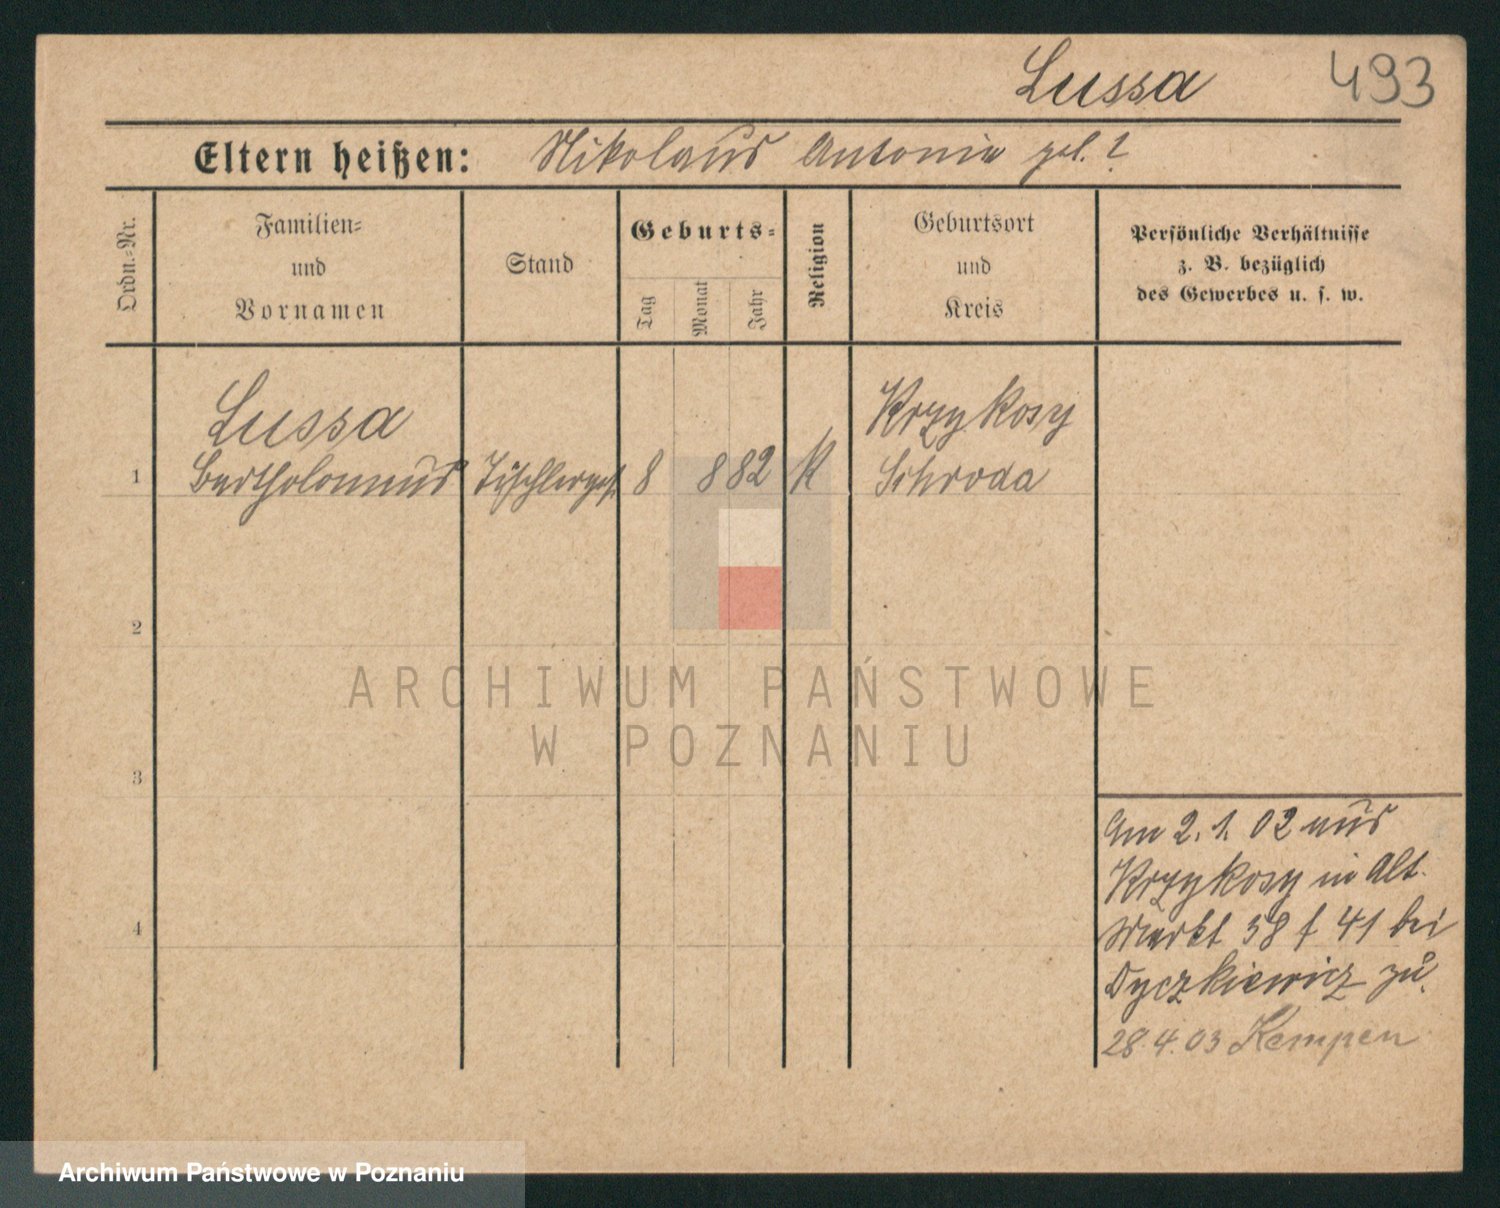 Lussa 493
Eltern heißen: Nikolaus Antonie geb. ?
Ordn.-Nr.
Familien-
und
Vornamen
Stand
Geburts-
Tag
Monat
Jahr
Religion
Geburtsort
und
Kreis
Persönliche Verhältnisse
z. B. bezüglich
des Gewerbes u. s. w.
Lussa Krzykosy
1 Bartholomäus Tischlerges. 8 8 82 K Schroda
2
3
4
Am 2. 1. 02 aus
Krzykosy in Alt.
Markt 38 f 41 bei
Dyczkiewicz zu.
28.4.03 Kempen
ARCHIWUM PAŃSTWOWE
W POZNANIU
Archiwum Państwowe w Poznaniu